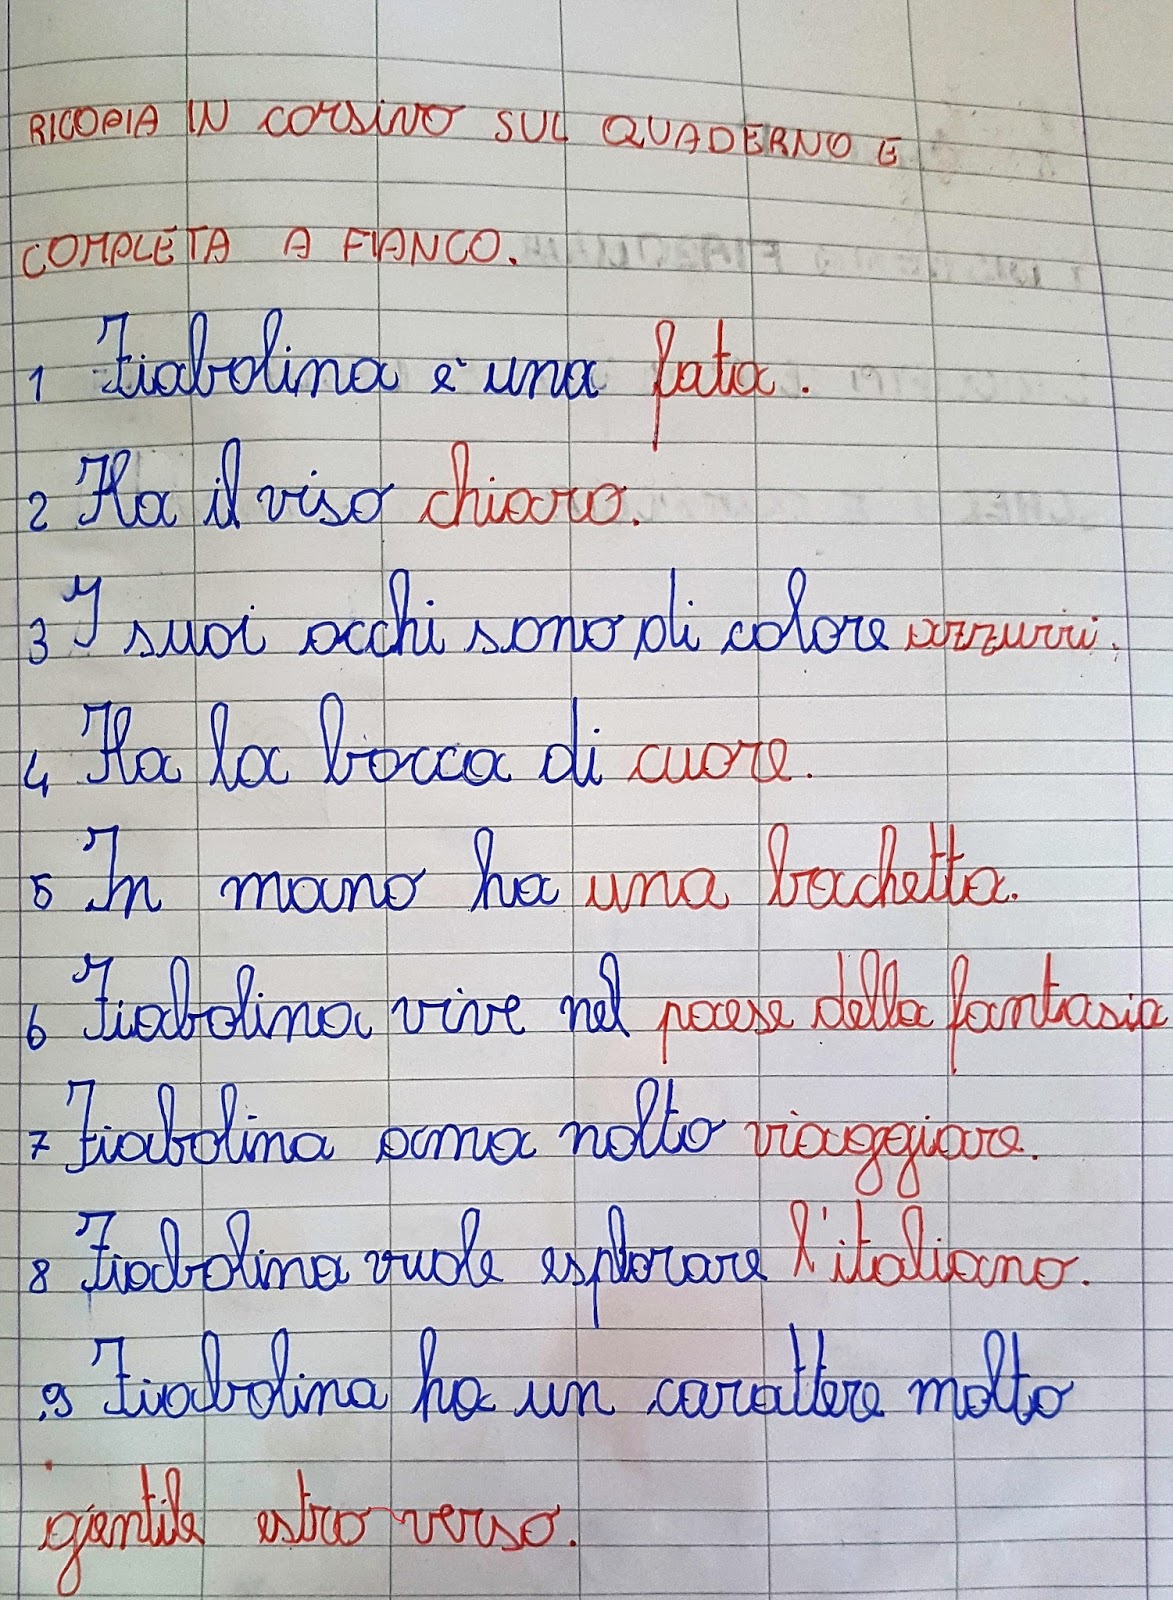 RICOPIA IN corsivo SUL QUADERNO E
COMPLETA A FIANCO.
1 Fiabolina è una fata.
2 Ha il viso chiaro.
3 I suoi occhi sono di colore azzurri.
4 Ha la bocca di cuore.
5 In mano ha una bachetta.
6 Fiabolina vive nel paese della fantasia
7 Fiabolina ama molto viaggiare.
8 Fiabolina vuole esplorare l'italiano.
9 Fiabolina ha un carattere molto
gentile estroverso.